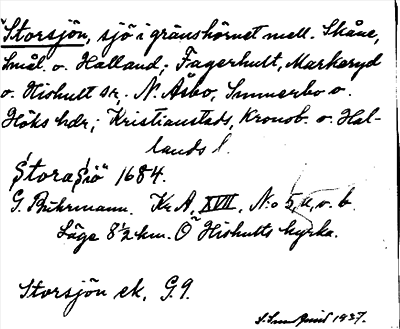 Storsjön, sjö i gränshörnet mell. Skåne,
Smål. o. Halland; Fagerhult, Markaryd
o. Hishult sr, N. Åsbo, Sunnerbo o.
Höks hdr; Kristianstads, Kronob. o. Hal-
lands l.
Stora Siö 1684.
G. Buhrmann. Kr A, XVII, N:o 5, a, o. b.
Läge 8½ km. O Hishults kyrka.
Storsjön ek. G. 9.
1937.